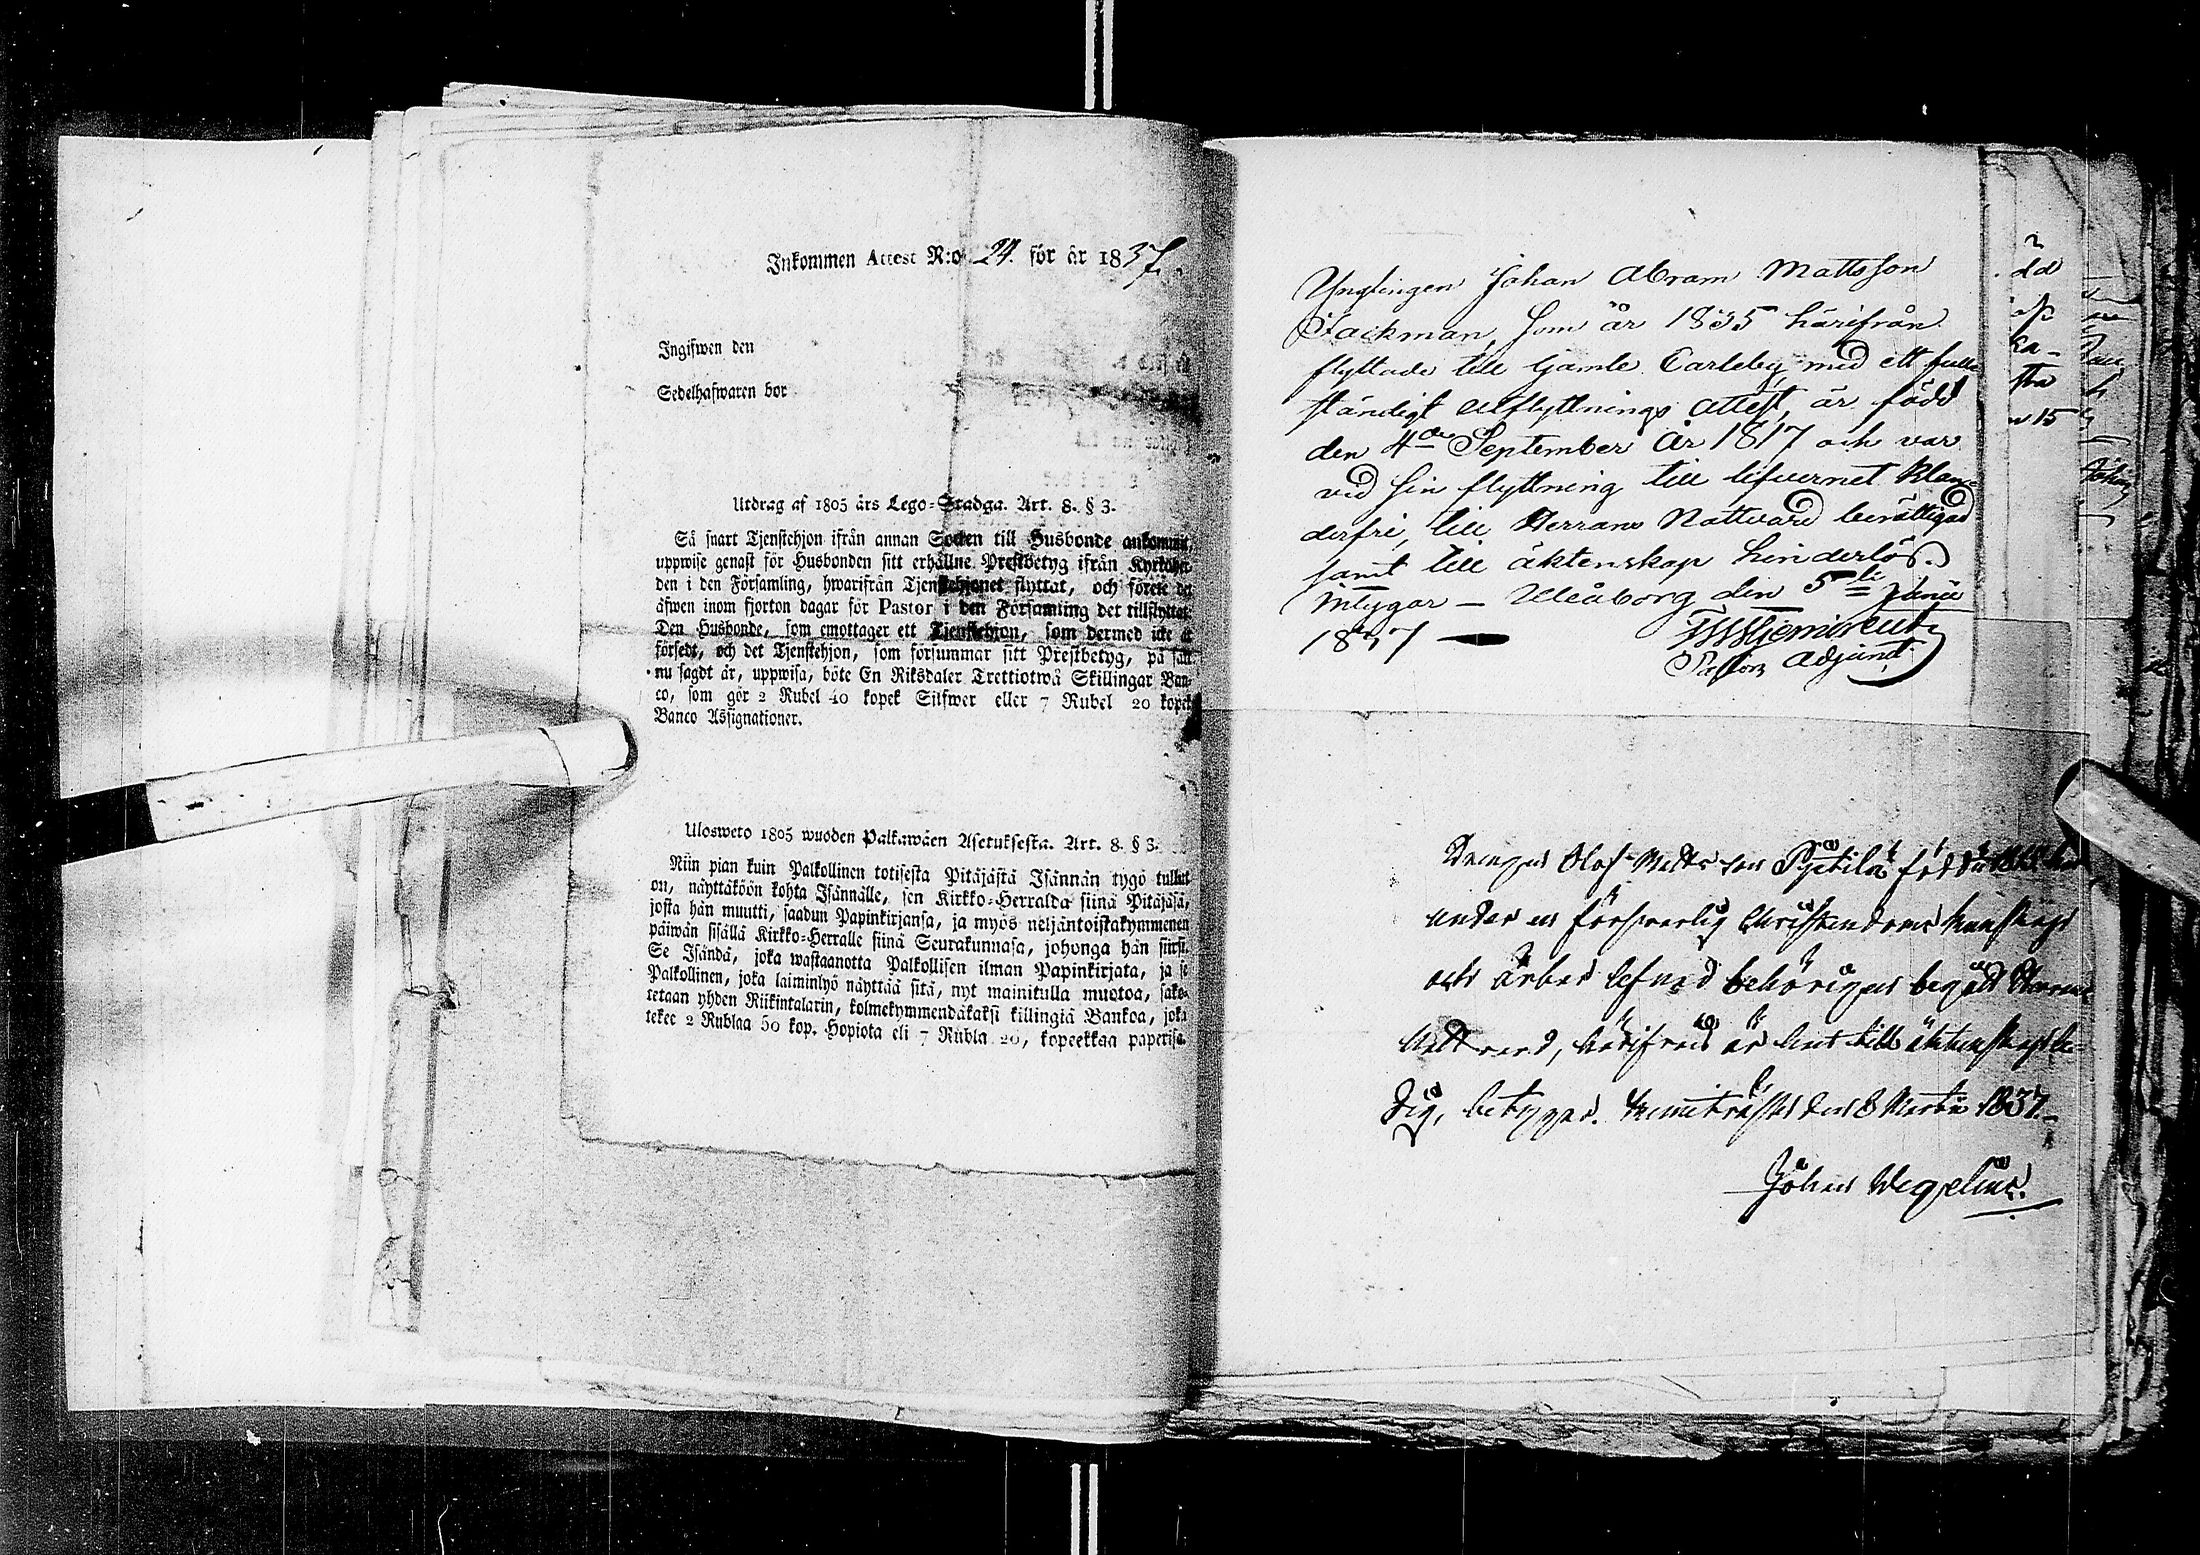 Inkommen Attest N:o 24. för år 1837.
Ingifwen den
Sedelhafwaren bor
Utdrag af 1805 års Lego-Stadga. Art. 8. § 3.
Så snart Tjenstehjon ifrån annan Socken till Husbonde ankommit,
uppwise genast för Husbonden sitt erhållne Prestbetyg ifrån Kyrkoher-
den i den Församling, hwarifrån Tjenstehjonet flyttat, och förete det
äfwen inom fjorton dagar för Pastor i den Församling det tillflyttat.
Den Husbonde, som emottager ett Tjenstehjon, som dermed icke är
försedt, och det Tjenstehjon, som försummar sitt Prestbetyg, på sätt
nu sagdt är, uppwisa, böte En Riksdaler Trettiotwå Skillingar Ban-
co, som gör 2 Rubel 40 kopek Silfwer eller 7 Rubel 20 kopek
Banco Assignationer.
Ulosweto 1805 wuoden Palkawäen Asetuksesta. Art. 8. § 3.
Niin pian kuin Palkollinen totisesta Pitäjästä Isännän tygö tullut
on, näyttäköön kohta Isännälle, sen Kirkko-Herralda siinä Pitäjäsä,
josta hän muutti, saadun Papinkirjansa, ja myös neljäntoistakymmenen
päiwän sisällä Kirkko-Herralle siinä Seurakunnasa, johonga hän siirsi.
Se Isändä, joka wastaanotta Palkollisen ilman Papinkirjata, ja se
Palkollinen, joka laiminlyö näyttää sitä, nyt mainitulla muotoa, sako-
tetaan yhden Riikintalarin, kolmekymmendäkaksi killingiä Bankoa, joka
tekee 2 Rublaa 50 kop. Hopiota eli 7 Rubla 20, kopeekkaa paperisa.
Ynglingen Johan Abram Mattsson
Packman, som år 1835 härifrån
flyttade till Gamle Carleby med ett full-
ständigt utflyttnings attest, är född
den 4de September år 1817 och var
vid sin flyttning till lefvernet klan-
derfri, till Herrans Nattvard berättigad
samt till äktenskap hinderlös.
Intygar _ Uleåborg den 5te Junii
1837 —
Pastors Adjunct.
Drengen Olof Matts son född
under en försvarlig Christendoms kunskap
och ärbar lefnad behörigen begått Herrans
Nattvard, härifrån är han till äktenskap le-
dig, betygar. Kemiträsk den 8 Martii 1837._
Johan Wegelius.